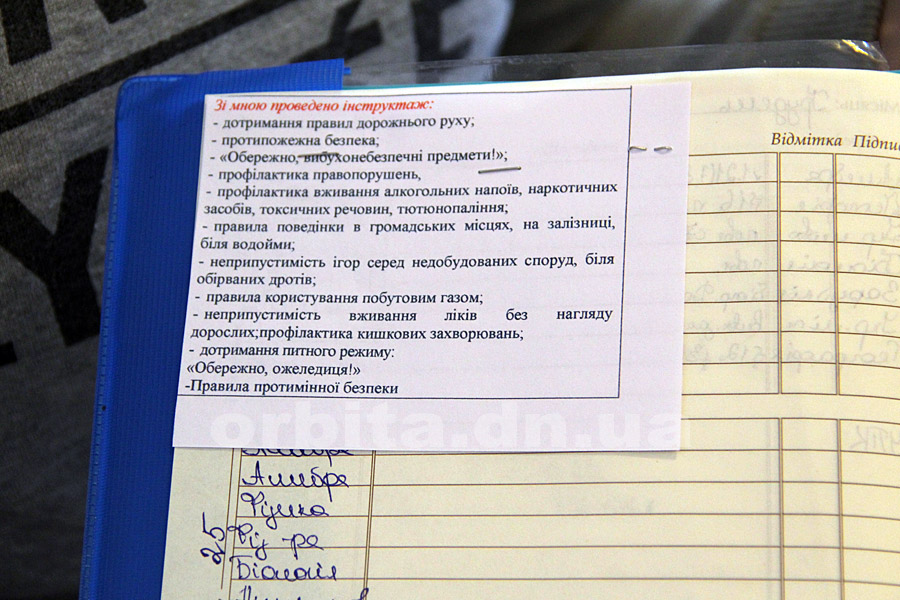 Зі мною проведено інструктаж:
- дотримання правил дорожнього руху;
- протипожежна безпека;
- «Обережно, вибухонебезпечні предмети!»;
- профілактика правопорушень,
- профілактика вживання алкогольних напоїв, наркотичних
засобів, токсичних речовин, тютюнопаління;
- правила поведінки в громадських місцях, на залізниці,
біля водойми;
- неприпустимість ігор серед недобудованих споруд, біля
обірваних дротів;
- правила користування побутовим газом;
- неприпустимість вживання ліків без нагляду
дорослих;профілактика кишкових захворювань;
- дотримання питного режиму:
«Обережно, ожеледиця!»
-Правила протимінної безпеки
Відмітка Підпис
orbita.dn.ua
Алгебра
Фізика
25
Фіз-ра
Біологія